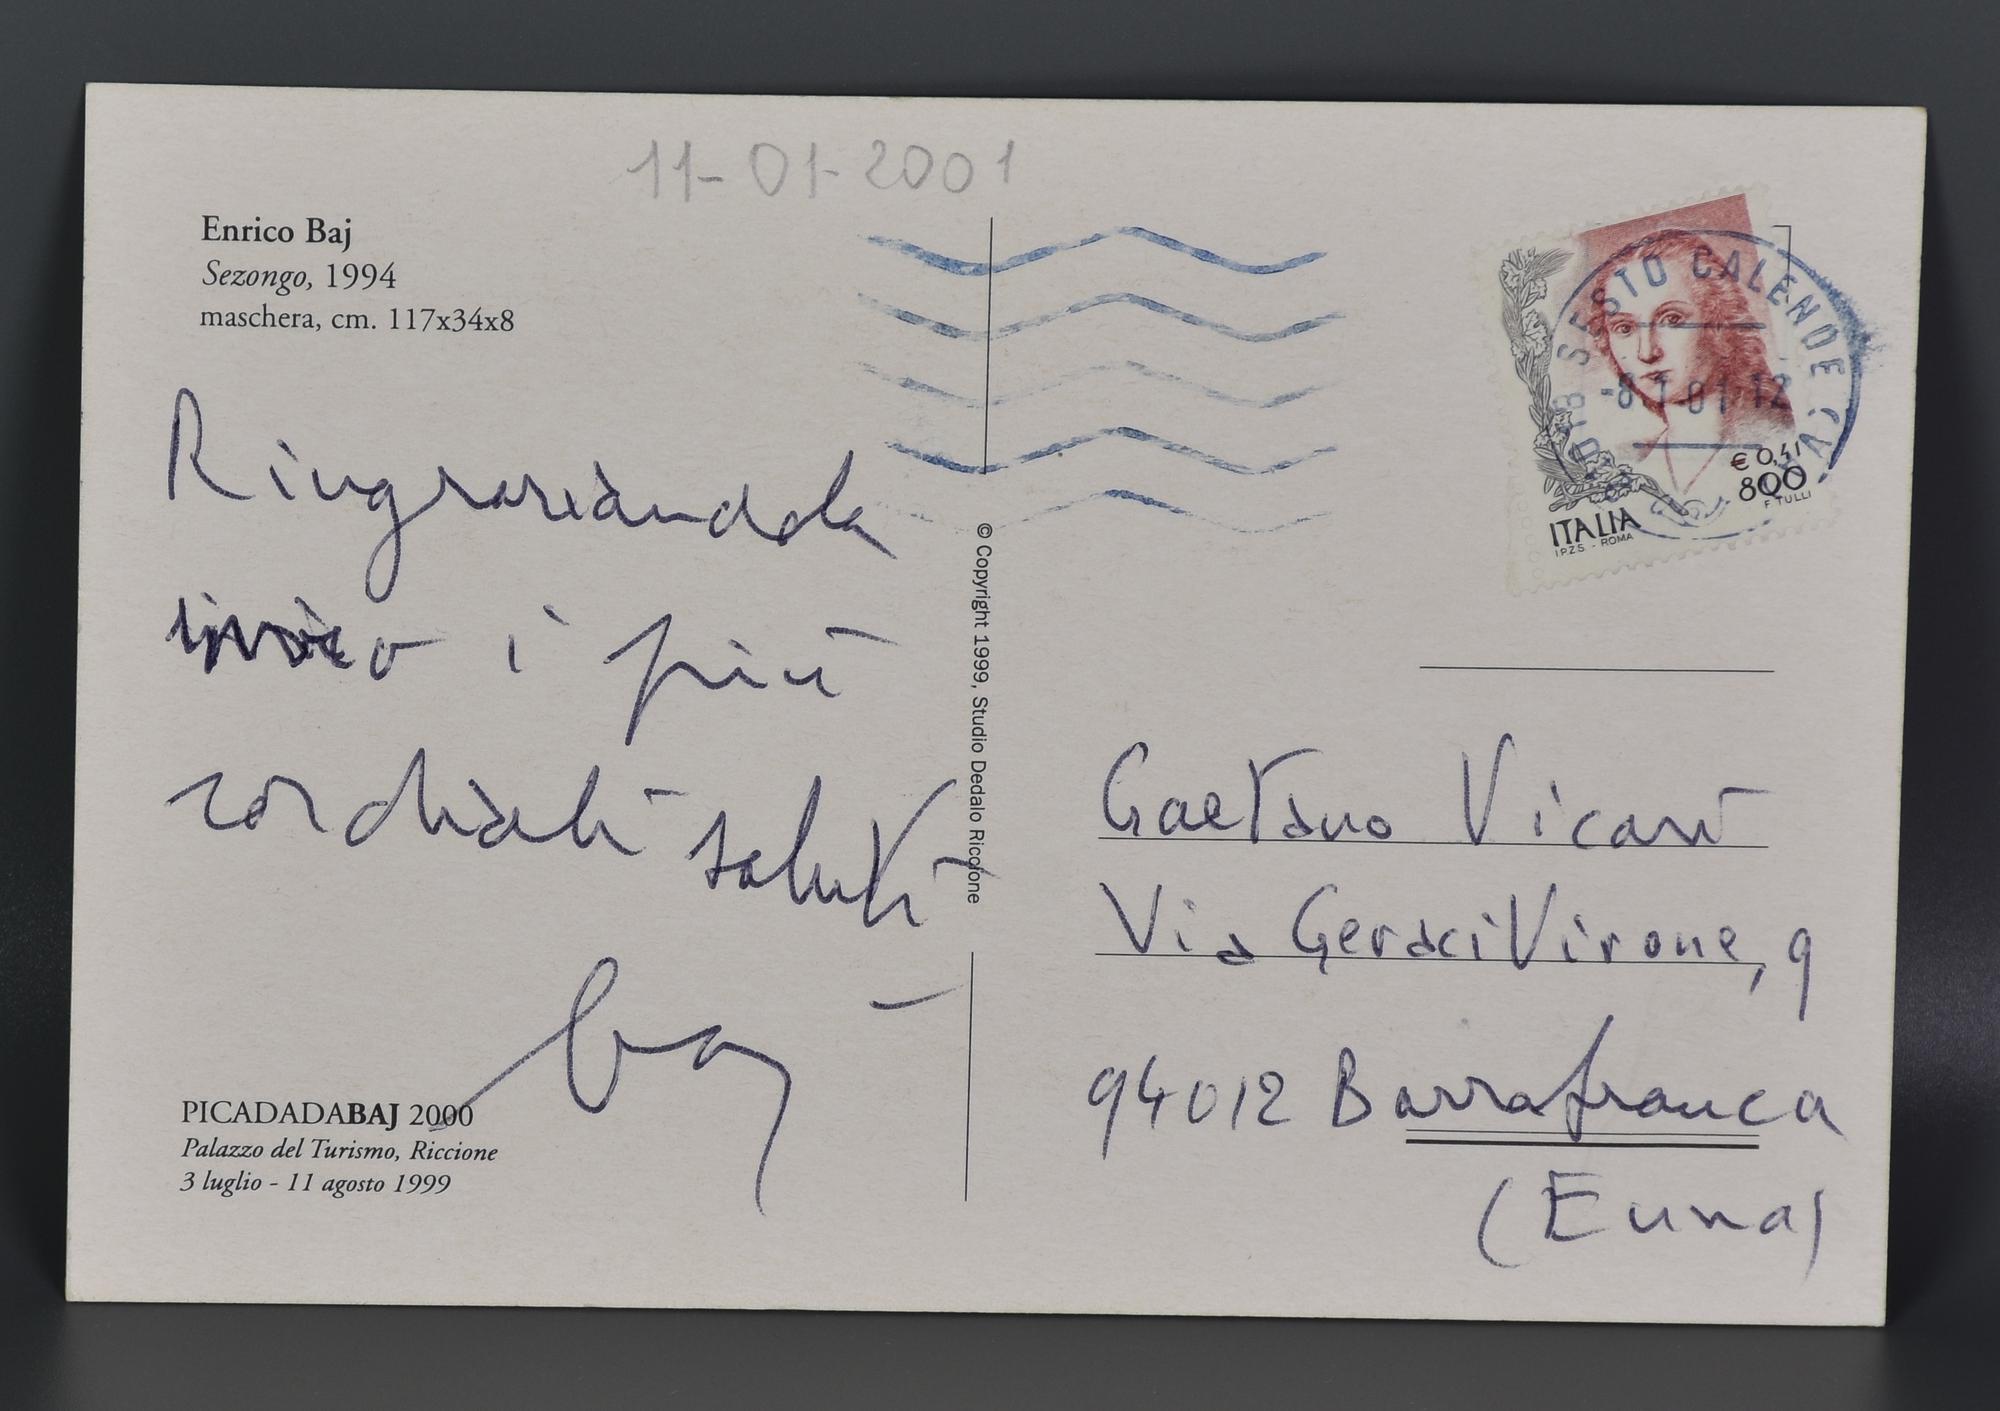 11-01-2001
Enrico Baj
Sezongo, 1994
maschera, cm. 117x34x8
Ringraziandola
invio i più
cordiali saluti
baj
PICADADABAJ 2000
Palazzo del Turismo, Riccione
3 luglio - 11 agosto 1999
© Copyright 1999, Studio Dedalo Riccione
SESTO CALENDE (VA)
-8.1-01 12
€ 0,41
800
F. TULLI
ITALIA
I.P.Z.S. - ROMA
Gaetano Vicari
Via Geraci Virone, 9
94012 Barrafranca
(Enna)